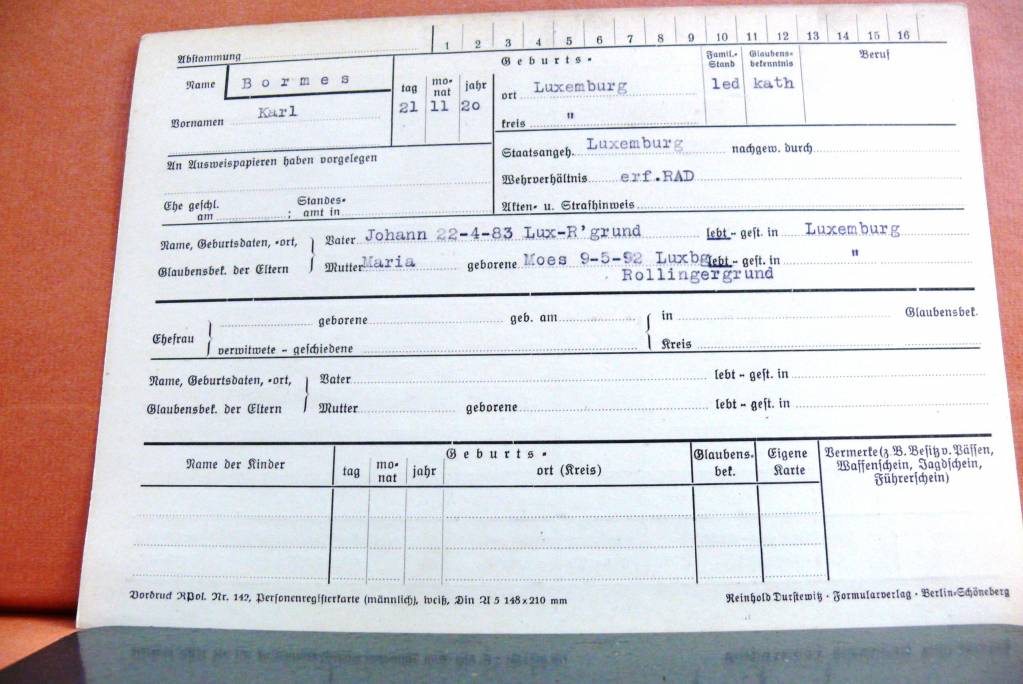 1 2 3 4 5 6 7 8 9 10 11 12 13 14 15 16
Abstammung
Name Bormes
Vornamen Karl
tag mo-nat jahr
21 11 20
Geburts-
ort Luxemburg
kreis "
Famil.-Stand
led
Glaubens-bekenntnis
kath
Beruf
An Ausweispapieren haben vorgelegen
Ehe geschl. am ; Standes-amt in
Staatsangeh. Luxemburg nachgew. durch
Wehrverhältnis erf.RAD
Akten- u. Strafhinweis
Name, Geburtsdaten, -ort,
Glaubensbek. der Eltern
Vater Johann 22-4-83 Lux-R'grund lebt - gest. in Luxemburg
Mutter Maria geborene Moes 9-5-92 Luxbg lebt - gest. in "
Rollingergrund
Ehefrau
geborene geb. am in Glaubensbek.
verwitwete - geschiedene Kreis
Name, Geburtsdaten, -ort,
Glaubensbek. der Eltern
Vater lebt - gest. in
Mutter geborene lebt - gest. in
Name der Kinder
Geburts-
tag mo-nat jahr ort (Kreis)
Glaubens-bek.
Eigene Karte
Vermerke (z. B. Besitz v. Pässen,
Waffenschein, Jagdschein,
Führerschein)
Vordruck RPol. Nr. 142, Personenregisterkarte (männlich), weiß, Din A 5 148x210 mm
Reinhold Durstewitz · Formularverlag · Berlin-Schöneberg